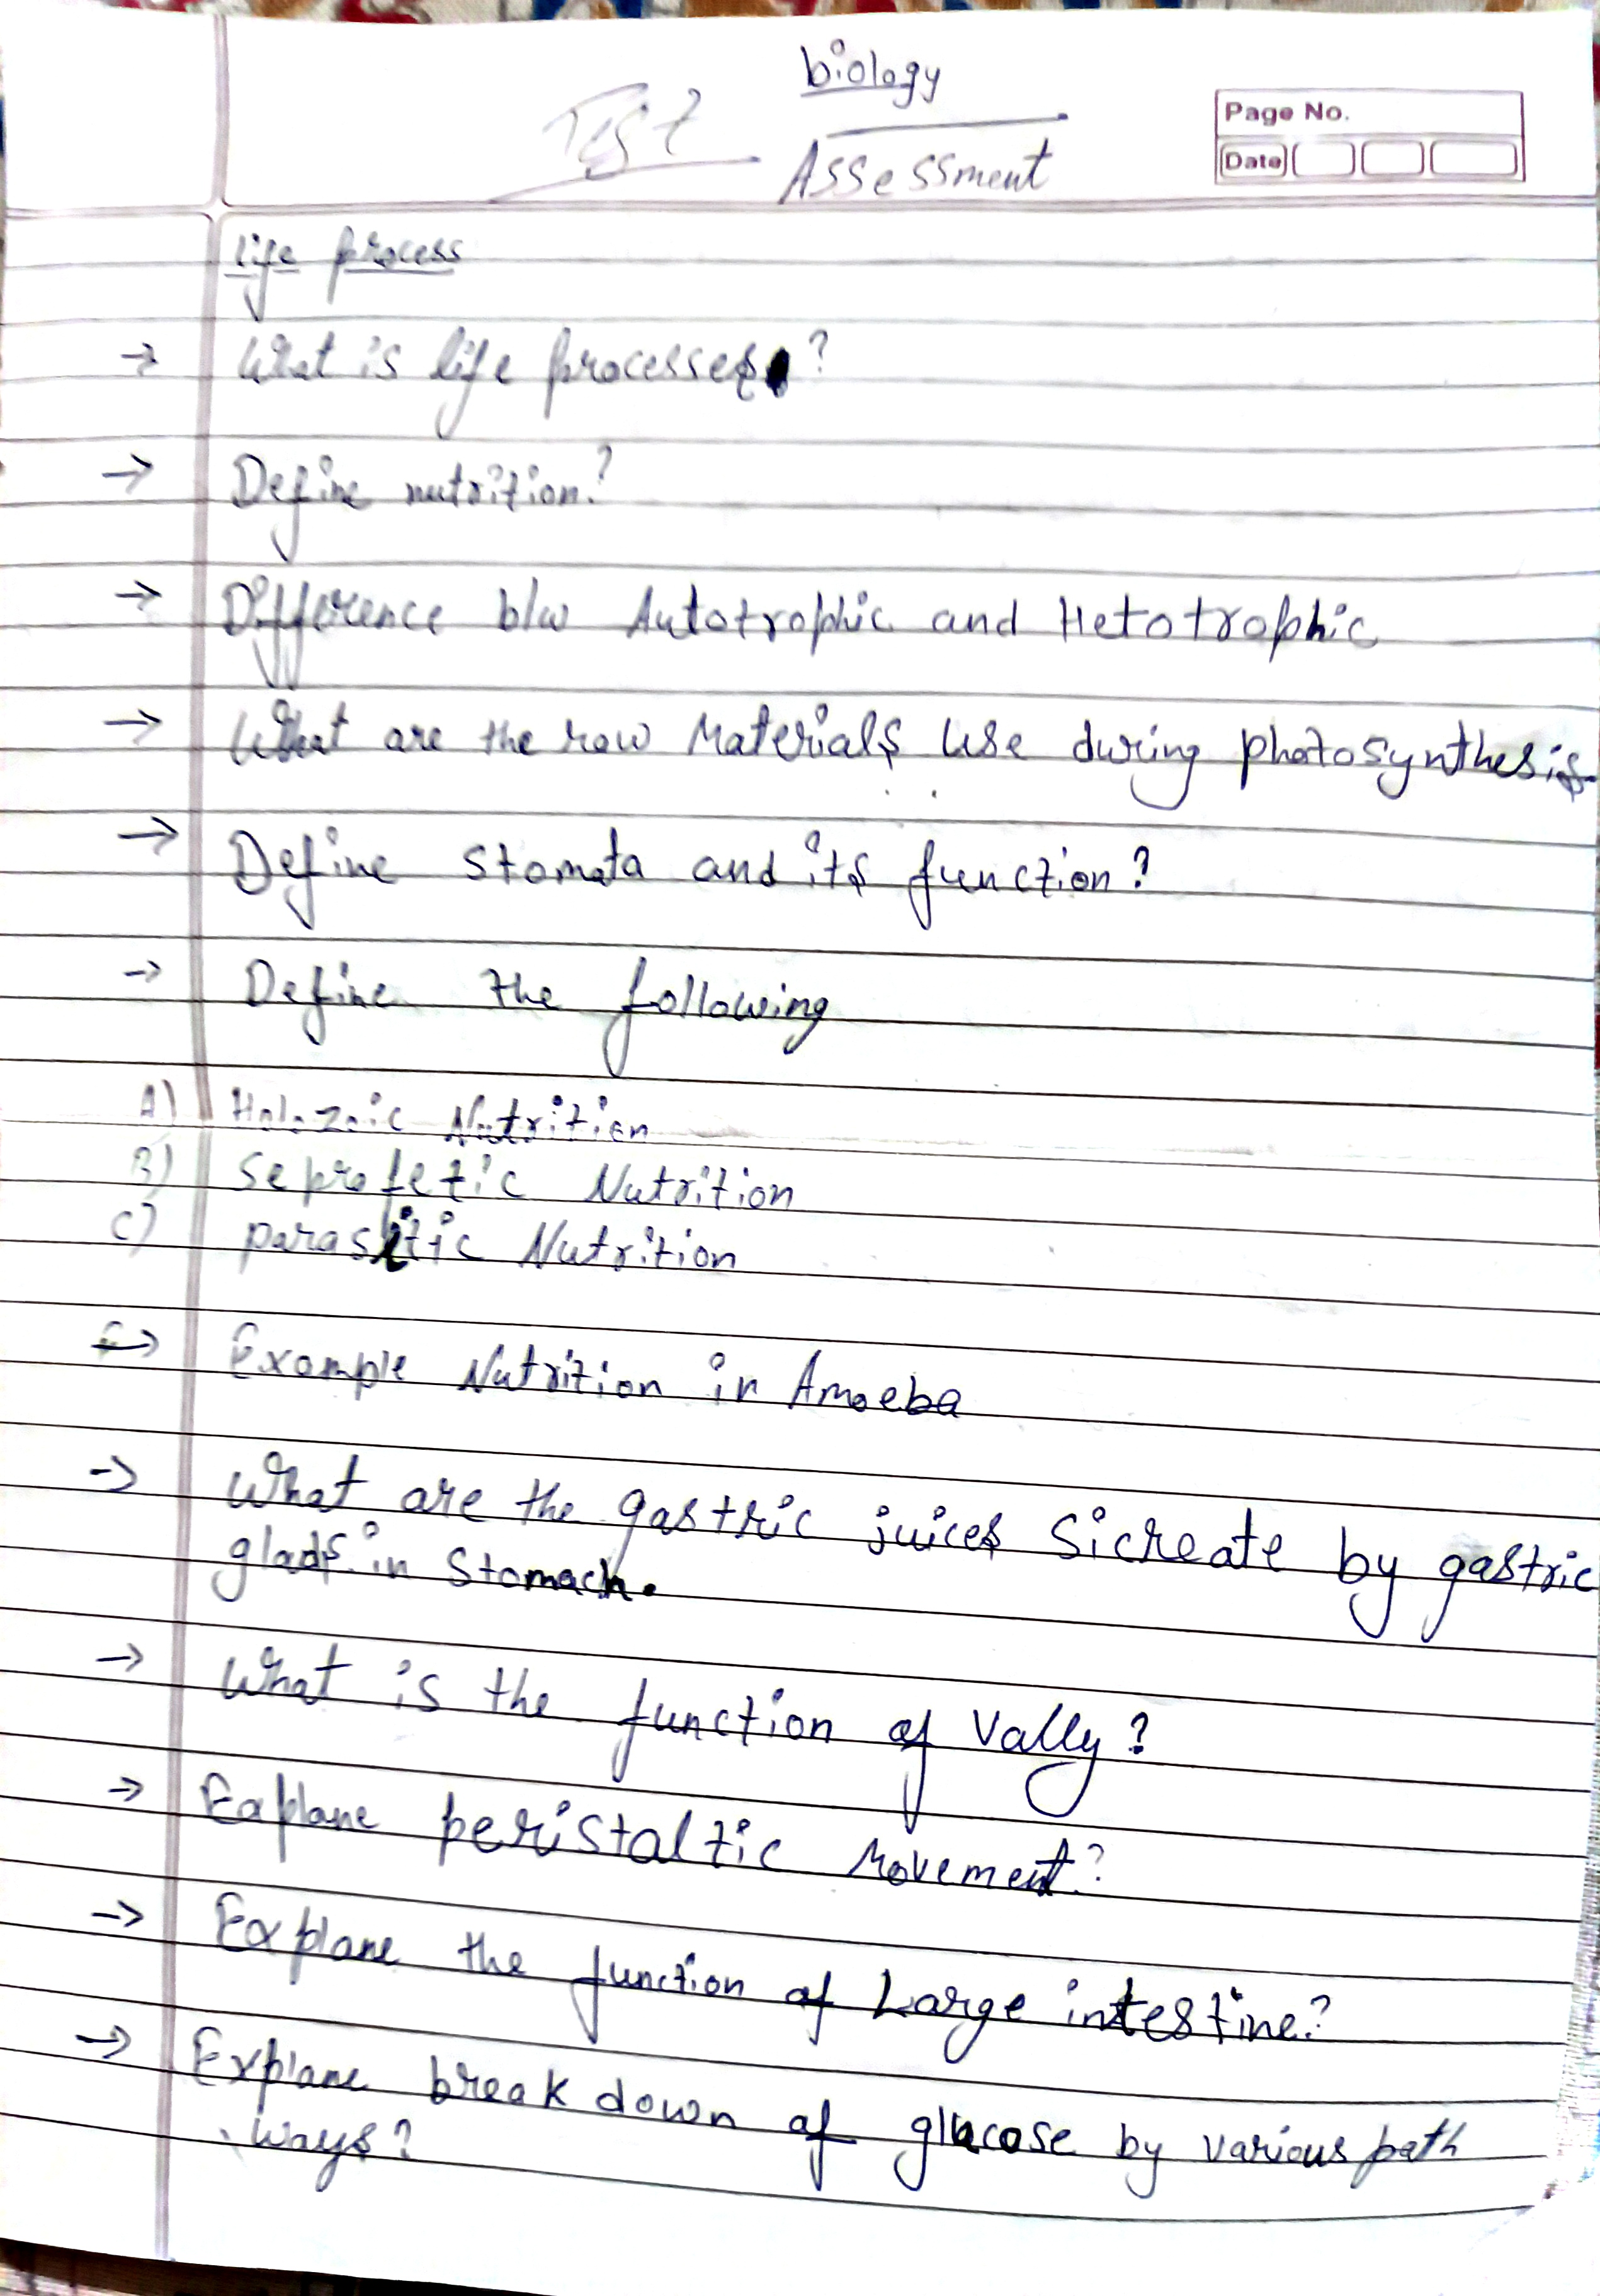 biology
Test Assessment
Page No.
Date
life process
→ What is life processes?
→ Define nutrition?
→ Difference b/w Autotrophic and Hetotrophic
→ What are the row Materials Use during photosynthesis
→ Define Stomata and its function?
→ Define the following
A) Holozoic Nutrition
B) Seprofetic Nutrition
C) parasitic Nutrition
→ Example Nutrition in Amoeba
→ What are the gastric juices Sicreate by gastric
glads in Stomach.
→ What is the function of Vally?
→ Explane peristaltic Movement?
→ Explane the function of Large intestine?
→ Explane break down of glucose by various path
ways?